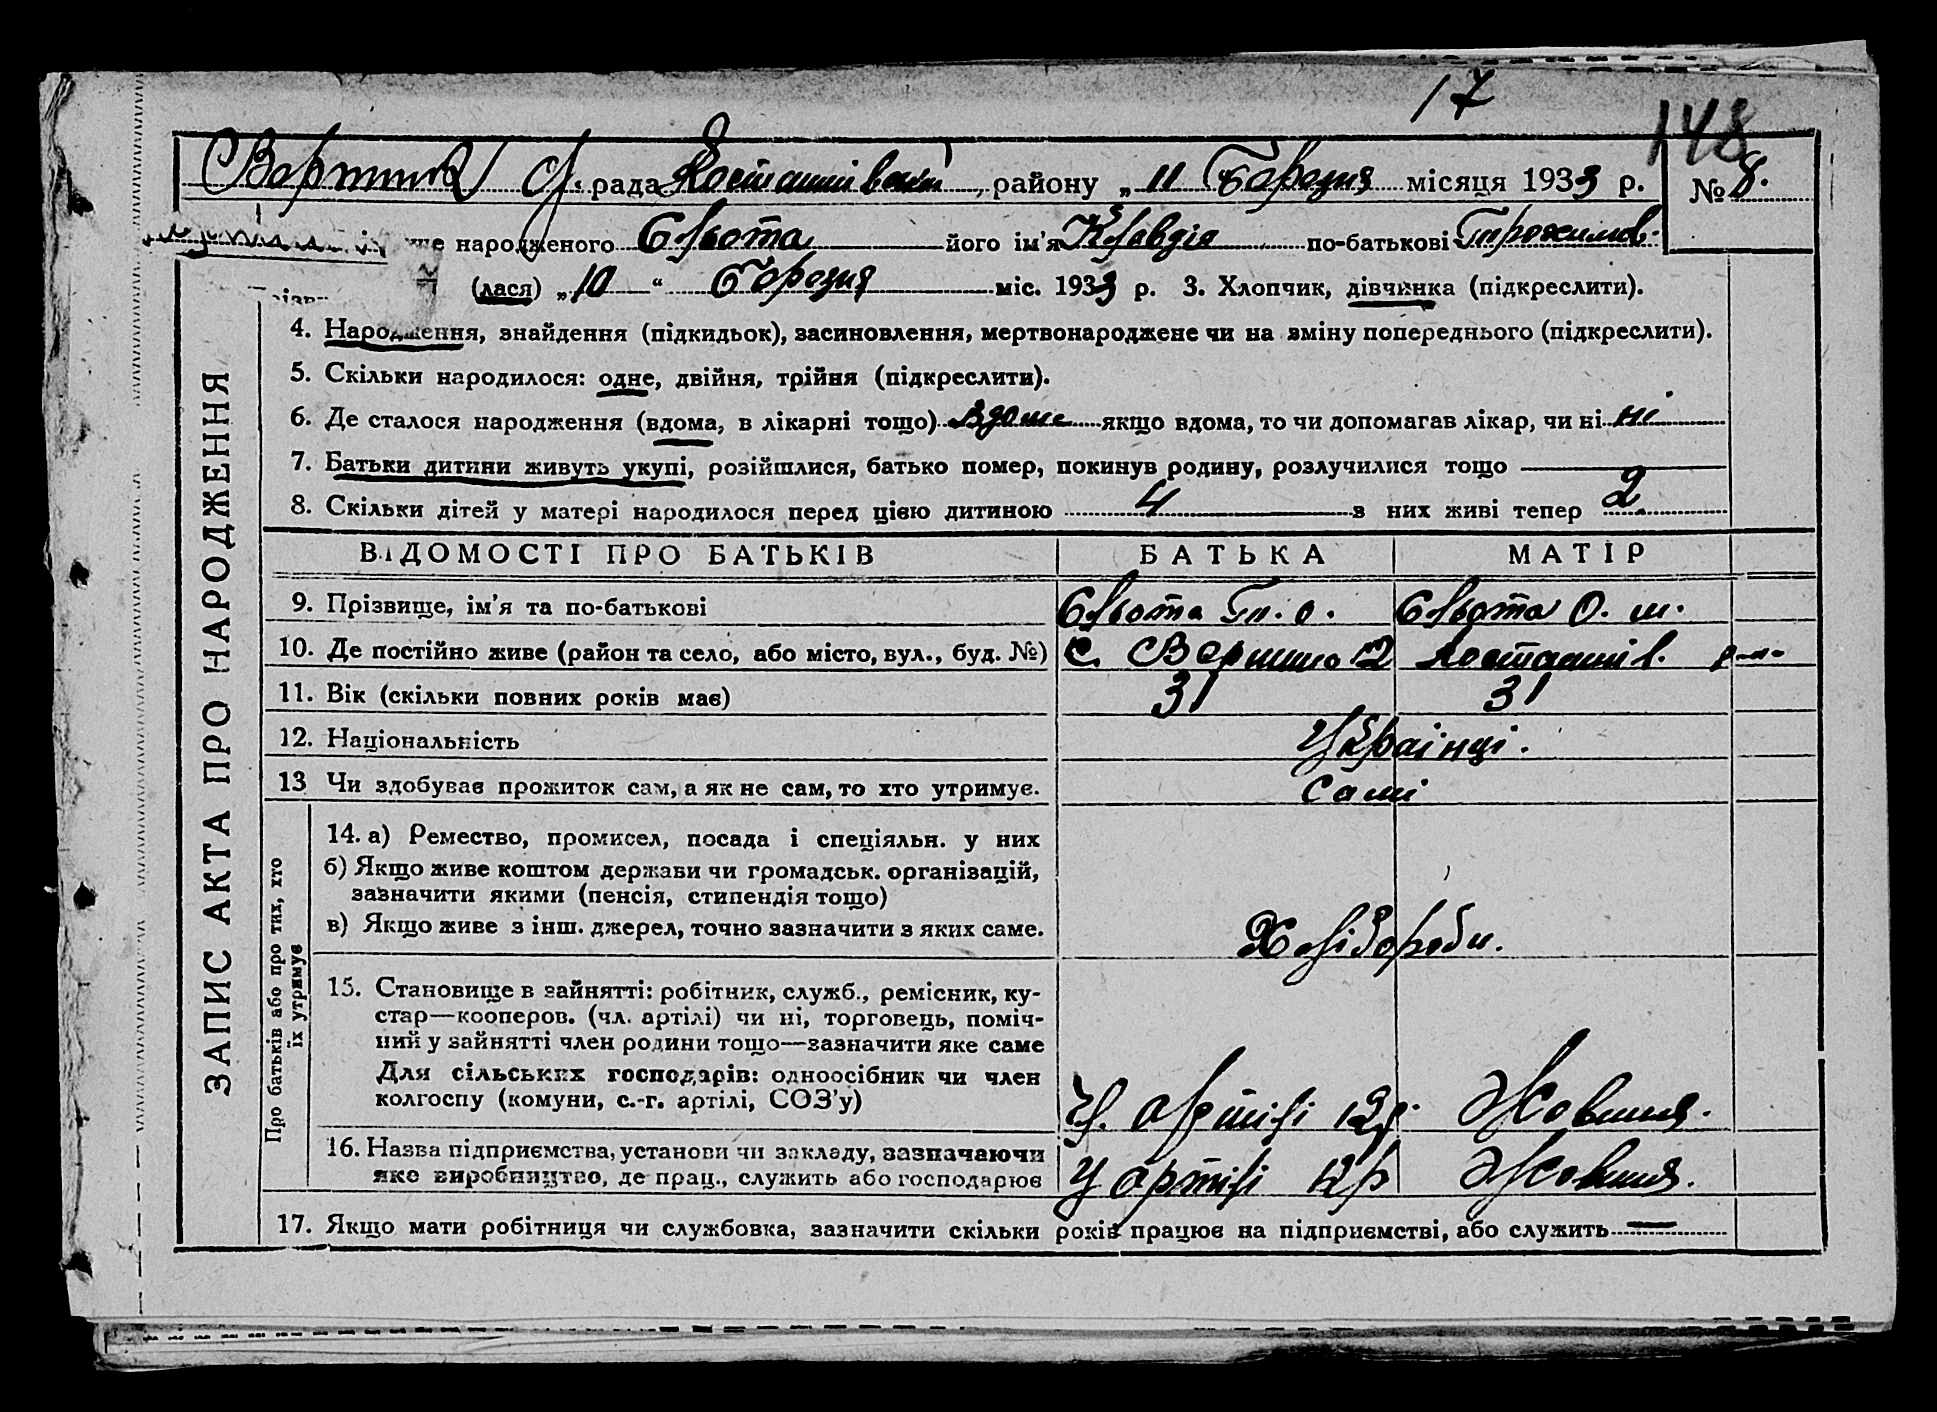 17
148
Вершин2 С. рада Костянтівськ, району „ 11 " Березня місяця 1933 р. № 8.
ще народженого Сльота його ім'я Клавдія по-батькові Трохимов.
(лася) „10 “ Березня міс. 1933 р. 3. Хлопчик, дівчинка (підкреслити).
4. Народження, знайдення (підкидьок), засиновлення, мертвонароджене чи на зміну попереднього (підкреслити).
5. Скільки народилося: одне, двійня, трійня (підкреслити).
6. Де сталося народження (вдома, в лікарні тощо) Вдома якщо вдома, то чи допомагав лікар, чи ні ні
7. Батьки дитини живуть укупі, розійшлися, батько помер, покинув родину, розлучилися тощо —
8. Скільки дітей у матері народилося перед цією дитиною 4 з них живі тепер 2
ВІДОМОСТІ ПРО БАТЬКІВ БАТЬКА МАТІР
9. Прізвище, ім'я та по-батькові Сльота Т. О. Сльота О. М.
10. Де постійно живе (район та село, або місто, вул., буд. №) С. Вершина 2 Костянтів. р-н.
11. Вік (скільки повних років має) 31 31
12. Національність Українці.
13 Чи здобуває прожиток сам, а як не сам, то хто утримує. Сами
ЗАПИС АКТА ПРО НАРОДЖЕННЯ
Про батьків або про тих, хто
їх утримує
14. а) Ремество, промисел, посада і спеціяльн. у них
б) Якщо живе коштом держави чи громадськ. організацій,
зазначити якими (пенсія, стипендія тощо)
в) Якщо живе з інш. джерел, точно зазначити з яких саме. Хлібороби.
15. Становище в зайнятті: робітник, служб., ремісник, ку-
стар—кооперов. (чл. артілі) чи ні, торговець, поміч-
ний у зайнятті член родини тощо—зазначити яке саме
Для сільських господарів: одноосібник чи член
колгоспу (комуни, с.-г. артілі, СОЗ'у) Чл. артілі 12 р. Жовтня.
16. Назва підприємства, установи чи закладу, зазначаючи
яке виробництво, де прац., служить або господарює У артілі 12 р Жовтня.
17. Якщо мати робітниця чи службовка, зазначити скільки років працює на підприємстві, або служить —